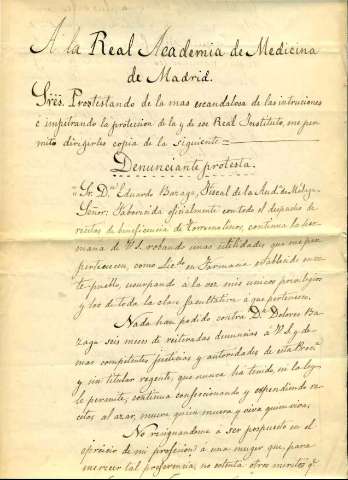 A la Real Academia de Medicina
de Madrid.
Sres. Prostestando de la mas escandalosa de las intrusiones
é impetrando la proteccion de la y de ese Real Instituto, me per-
mito dirigerles copia de la siguiente =
Denunciante protesta.
"Sr. Dn. Eduardo Bazaga, Fiscal de la Auda. de Málaga
Señor: Faborecida oficialmente con todo el despacho de
recetas de beneficencia de Torremolinos, continua la her-
mana de V.S. robando unas utilidades que me per-
tenecen, como Licdo. en Farmacia establecido en es-
te pueblo, usurpando á la vez mis únicos privilegios
y los de toda la clase facultativa á que pertenezco.
Nada han podido contra Da. Dolores Ba-
zaga seis meses de reiteradas denuncias á V.S. y de-
mas competentes justicias y autoridades de esta Prova.
y sin titular regente, que nunca ha tenido, ni la ley
le permite, continua confeccionando y expendiendo re-
cetas al azar, muera quien muera y viva quien viva.
No resignandome á ser pospuesto en el
ejercicio de mi profesion á una muger que, para
merecer tal preferencia, no ostenta otros meritos qe.